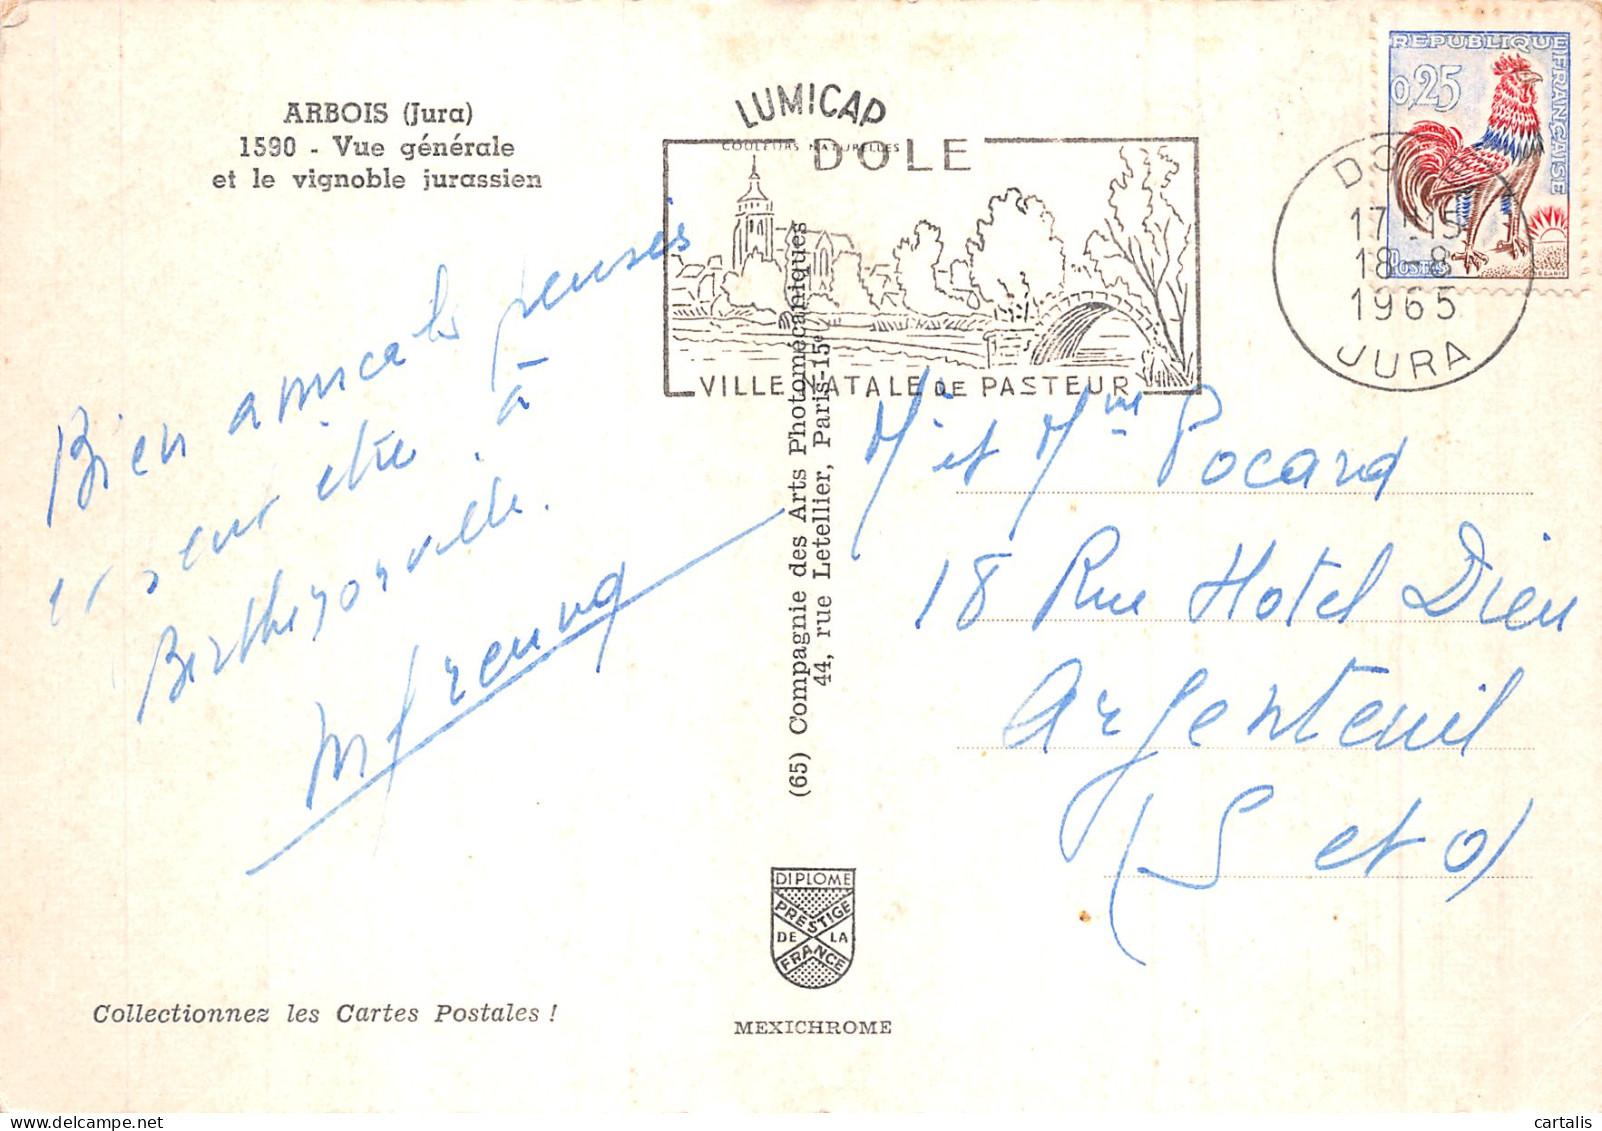 ARBOIS (Jura)
1590 - Vue générale
et le vignoble jurassien
Bien amicales pensées
être à
Berthezonville.
Collectionnez les Cartes Postales !
LUMICAP
COULEURS NATURELLES
DOLE
VILLE NATALE DE PASTEUR
(65) Compagnie des Arts Photomécaniques
44, rue Letellier, Paris-15e
DIPLOME
PRESTIGE
DE LA
FRANCE
MEXICHROME
REPUBLIQUE FRANÇAISE
0,25
POSTES
DOLE
17H15
18-8
1965
JURA
Mr et Mme Pocard
18 Rue Hotel Dieu
Argenteuil
(S et O)
cartalis
delcampe.net